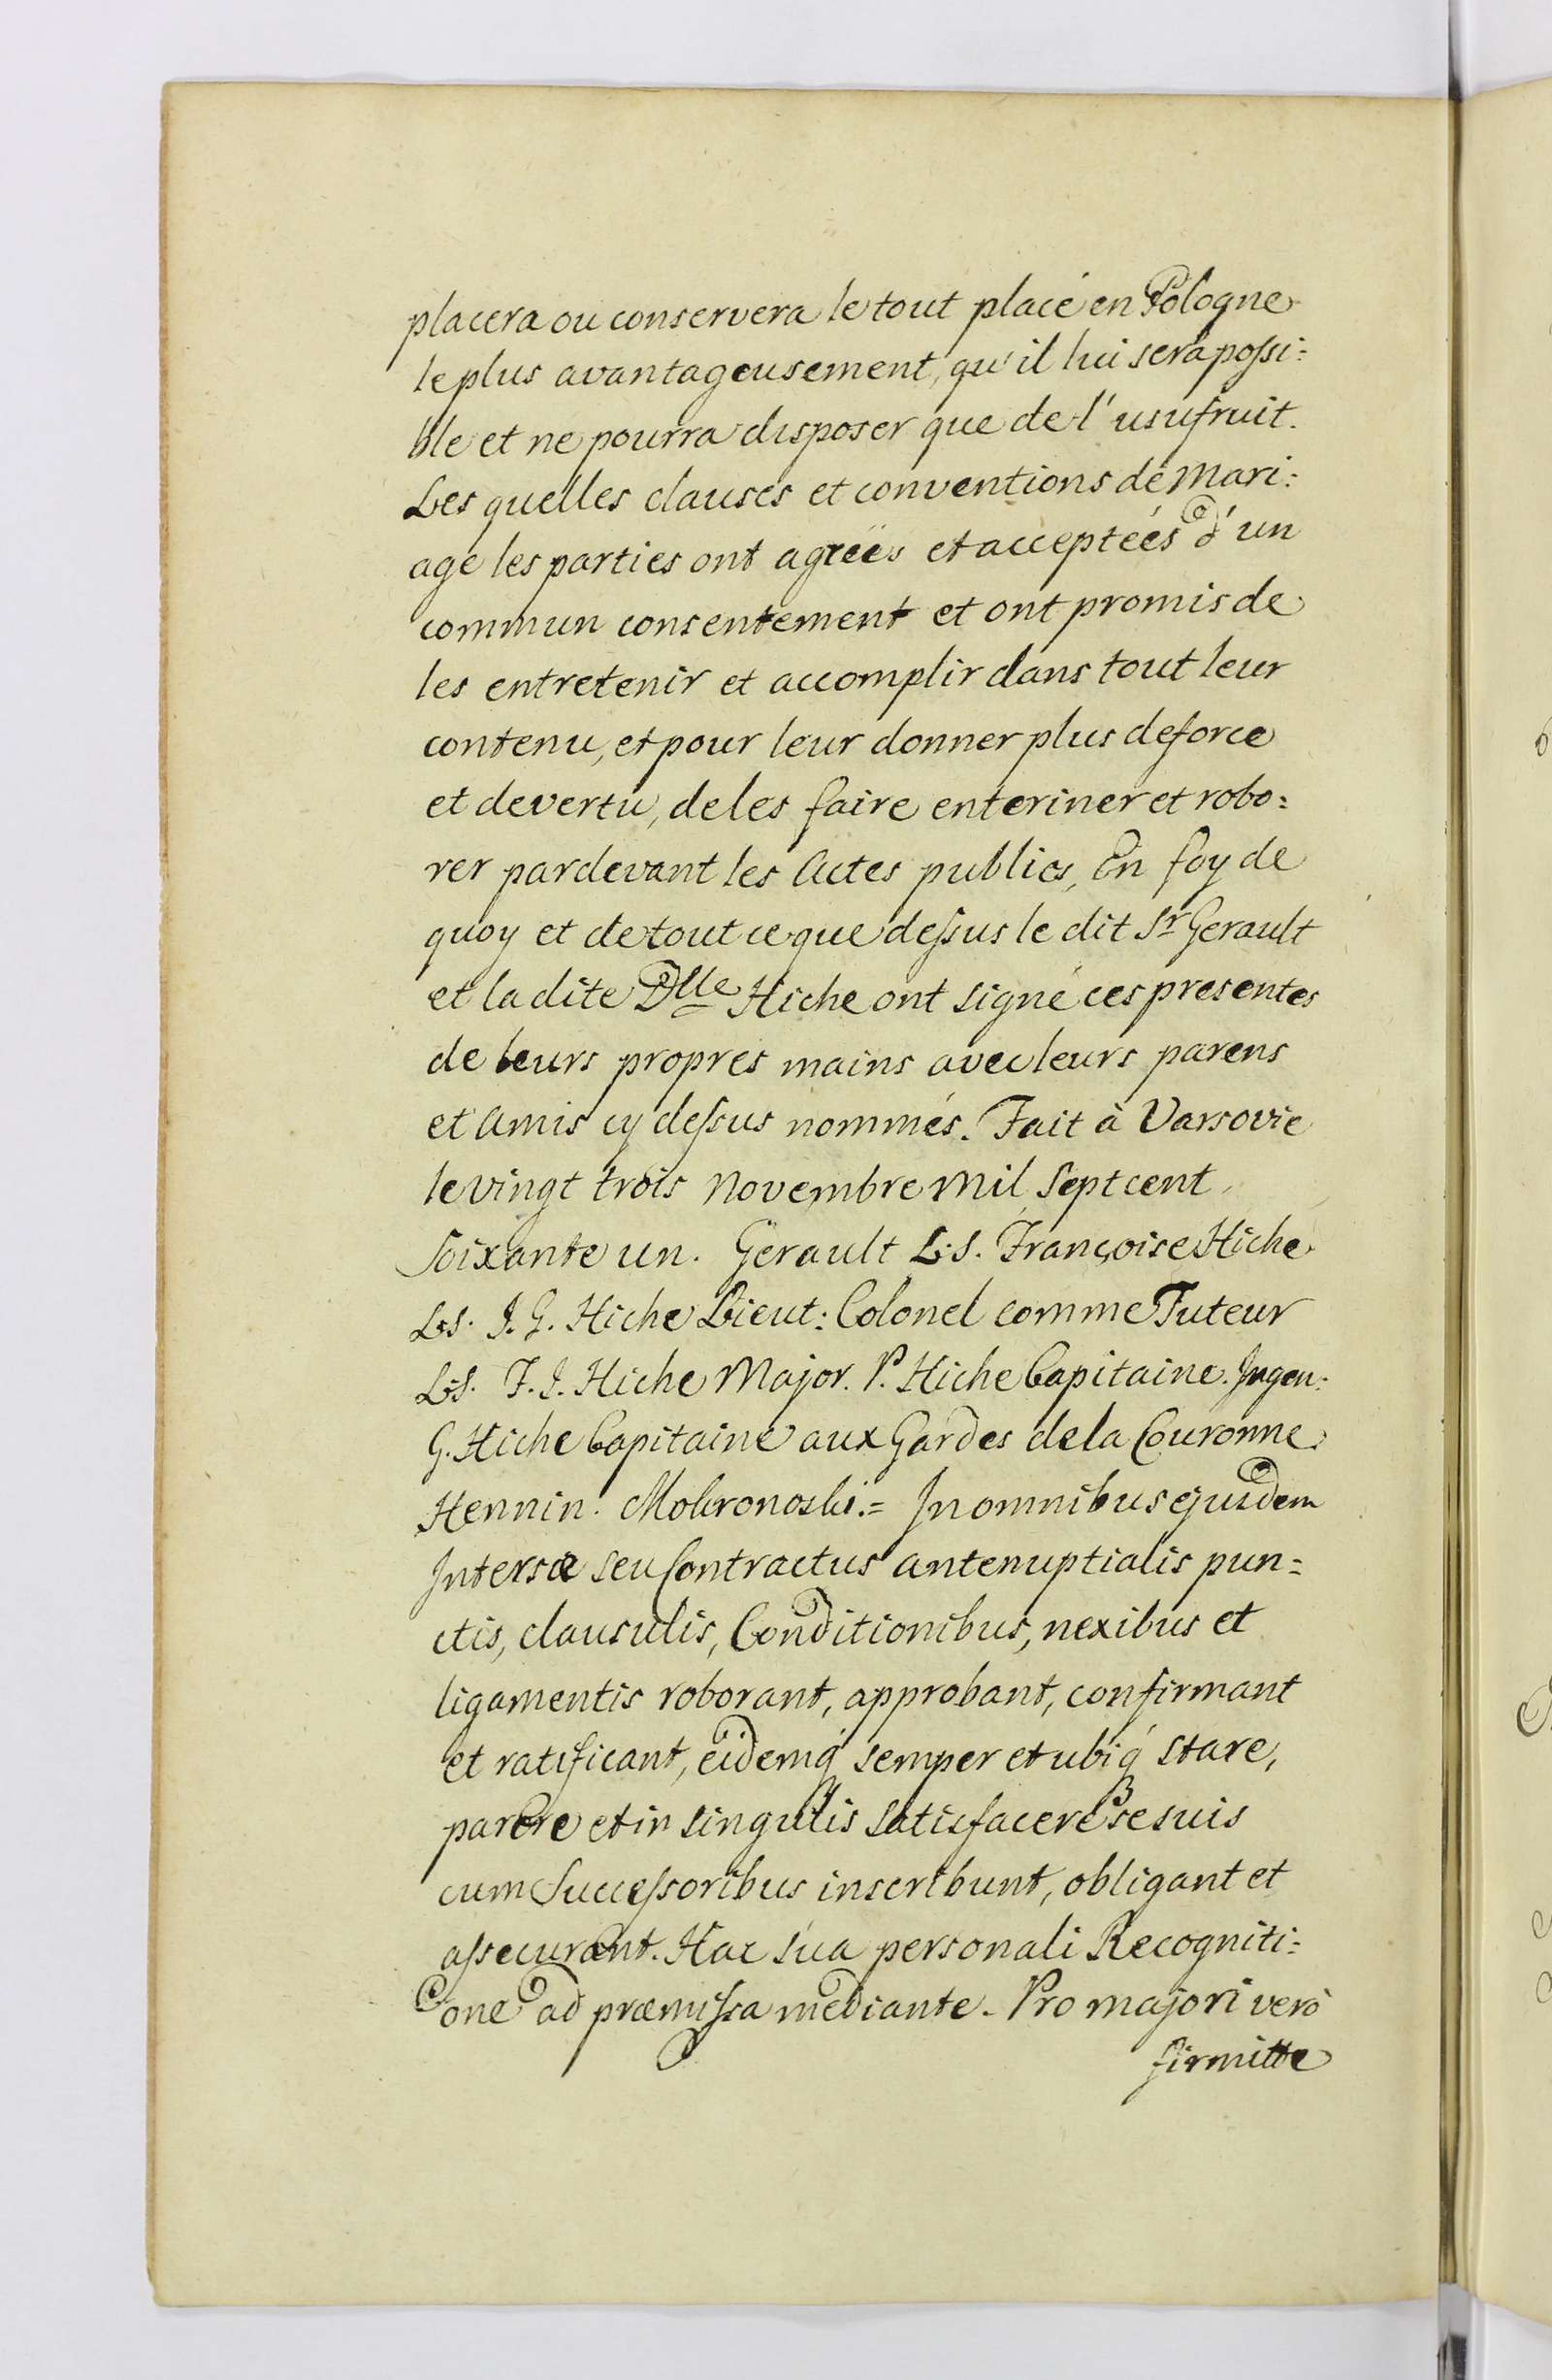 placera ou conservera le tout placé en Pologne
le plus avantageusement, qu'il lui sera possi:
ble et ne pourra disposer que de l'usufruit.
Les quelles clauses et conventions de Mari:
age les parties ont agréés et acceptéés d'un
commun consentement et ont promis de
les entretenir et accomplir dans tout leur
contenu, et pour leur donner plus de force
et de vertu, de les faire enteriner et robo:
rer pardevant les Actes publics, En foy de
quoy et de tout ce que dessus le dit Sr Gerault
et la dite Dlle Hiche ont signé ces presentes
de leurs propres mains avec leurs parens
et Amis cy dessus nommés. Fait à Varsovie
le vingt trois Novembre Mil Sept cent
Soixante un. Gerault L:S. Françoise Hiche
L:S. J. G. Hiche Lieut: Colonel comme Tuteur
L:S. F. J. Hiche Major. P. Hiche Capitaine. Ingen:
G. Hiche Capitaine aux Gardes de la Couronne
Hennin. Mokronoski.= In omnibus ejusdem
Intersæ seu Contractus antenuptialis pun=
ctis, clausulis, Conditionibus, nexibus et
ligamentis roborant, approbant, confirmant
et ratificant, eidemq́ semper et ubiq́ stare,
parere et in singulis satisfacere se suis
cum Successoribus inscribunt, obligant et
assecurant. Hac sua personali Recogniti:
one ad præmissa mediante. Pro majori verò
firmitte